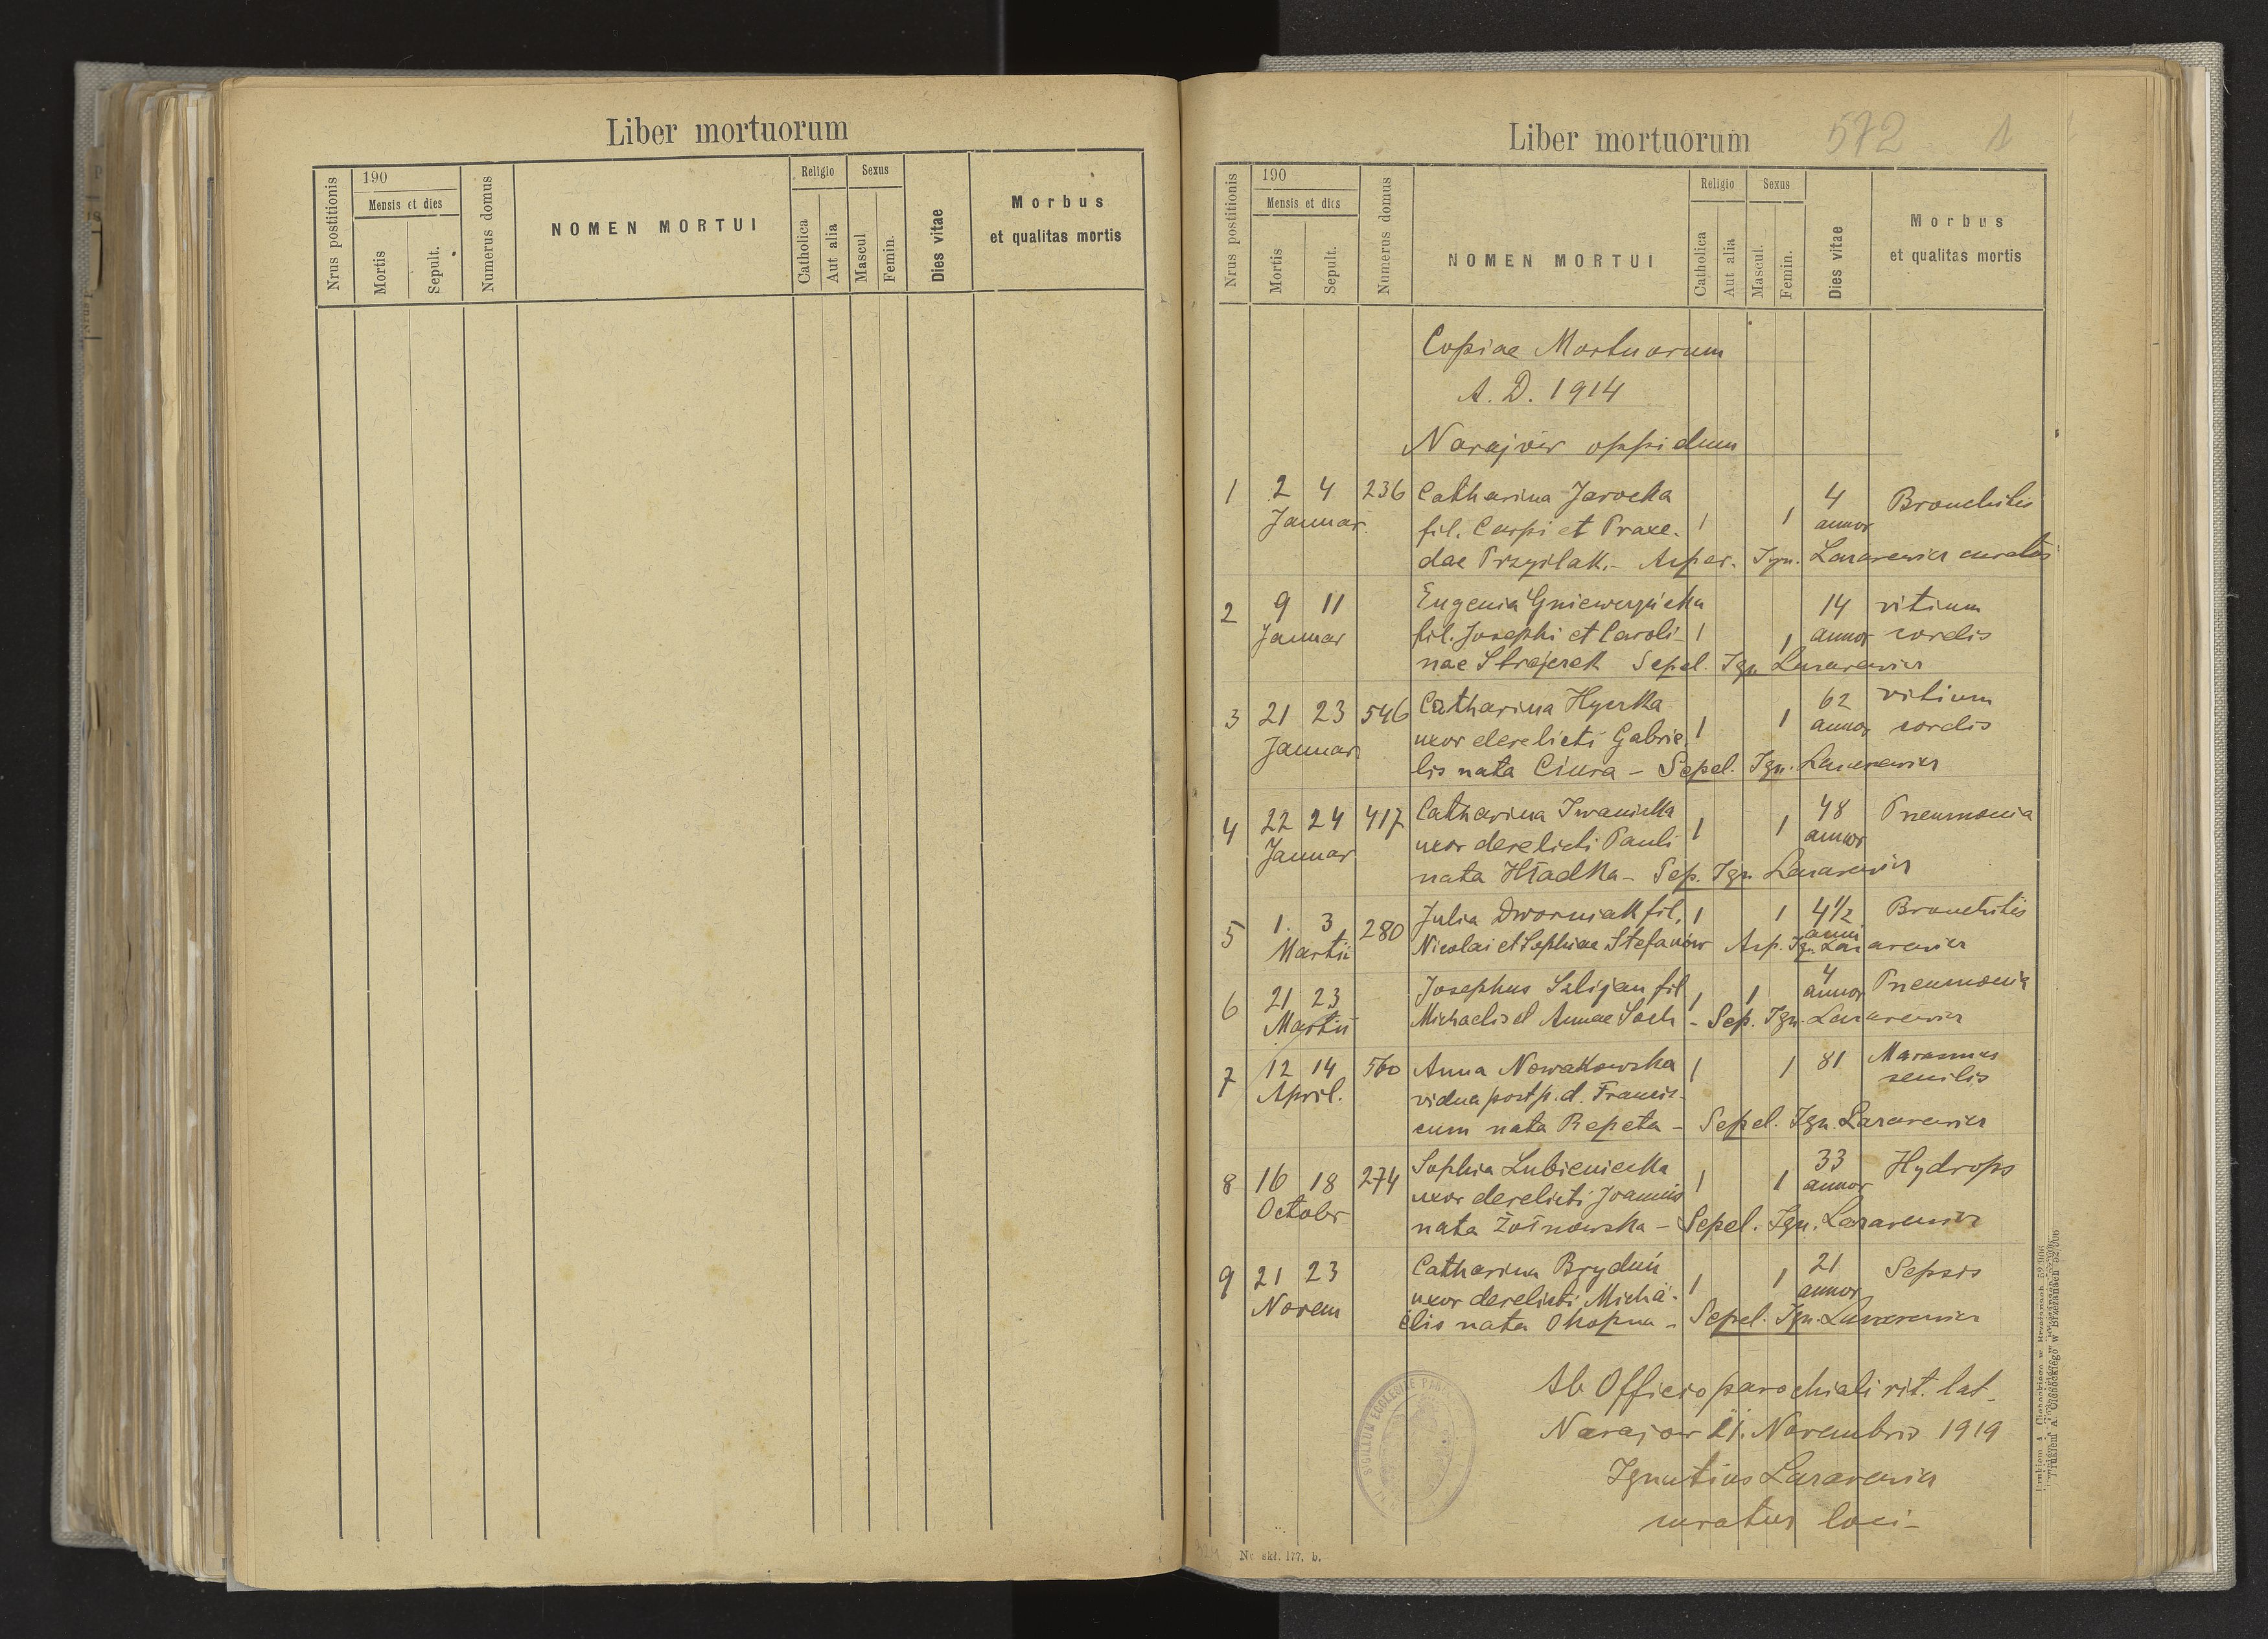 Liber mortuorum
Nrus postitionis
190
Mensis et dies
Mortis
Sepult.
Numerus domus
NOMEN MORTUI
Religio
Catholica
Aut alia
Sexus
Mascul
Femin.
Dies vitae
Morbus
et qualitas mortis
Liber mortuorum 572 1
Nrus postitionis
190
Mensis et dies
Mortis
Sepult.
Numerus domus
NOMEN MORTUI
Religio
Catholica
Aut alia
Sexus
Mascul.
Femin.
Dies vitae
Morbus
et qualitas mortis
Copiae Mortuorum
A. D. 1914
Narajów oppidum
1 2 4 236 Catharina Jarocka 4 Bronchitis
Januar. fil. Carpi et Praxe- 1 1 annor
dae Przysłak.- Asper. Ign. Lazarewicz curatus
2 9 11 Eugenia 14 vitium
Januar fil. Josephi et Caroli- 1 1 annor cordis
nae Strejczek Sepel. Ign. Lazarewicz
3 21 23 546 Catharina Hycka 62 vitium
Januar uxor derelicti Gabrie- 1 1 annor cordis
lis nata Ciura - Sepel. Ign. Lazarewicz
4 22 24 417 Catharina Iwanicka 48 Pneumonia
Januar uxor derelicti Pauli 1 1 annor
nata Hładka - Sep. Ign. Lazarewicz
5 1. 3 280 Julia Dworniak fil. 1 1 4 1/2 Bronchitis
Martii Nicolai et Sophiae Stefanów Asp. Ign. Lazarewicz
anni
6 21 23 Josephus Szlijan fil 1 1 4 Pneumonia
Martii Michaelis et Annae Soch - Sep. Ign. Lazarewicz
annor
7 12 14 560 Anna Nowakowska 1 1 81 Marasmus
April. vidua post p. d. Francis- senilis
cum nata Repeta - Sepel. Ign. Lazarewicz
8 16 18 274 Sophia Lubieniecka 1 1 33 Hydrops
Octobr uxor derelicti Joannis annor
nata Żołnowska - Sepel. Ign. Lazarewicz
9 21 23 Catharina Bryduń 1 1 21 Sepsis
Novem uxor derelicti Micha- annor
elis nata Okopna - Sepel. Ign. Lazarewicz
Ab Officio parochiali rit. lat.
Narajow 21. Novembris 1919
Ignatius Lazarewicz
curatus loci-
SIGILLUM ECCLESIAE
Nr. skł. 177. b.